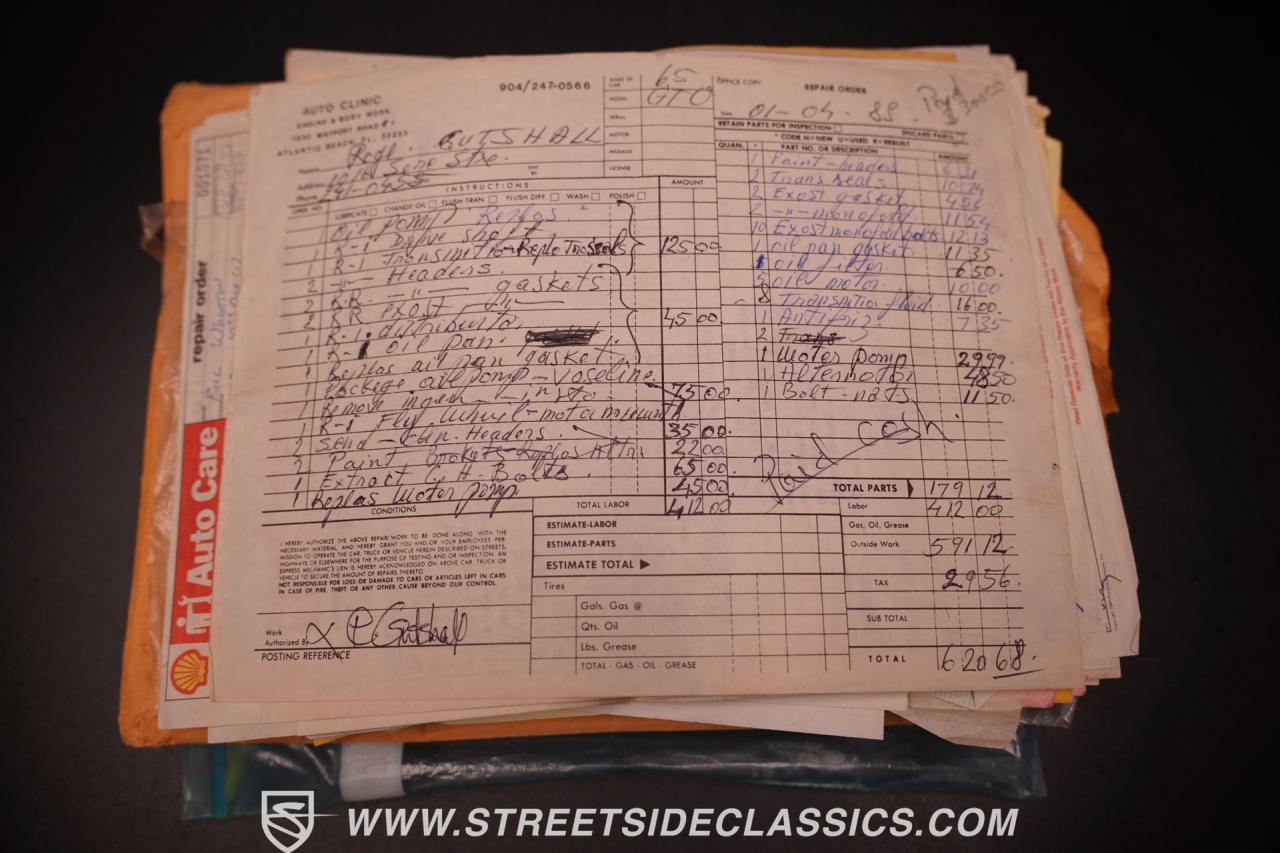 904/247-0566
AUTO CLINIC
ENGINE & BODY WORK
1650 MAYPORT ROAD # 1
ATLANTIC BEACH, FL. 32233
MAKE OF CAR 65
MODEL GTO
SERIAL
MOTOR
MILEAGE
LICENSE
OFFICE COPY
REPAIR ORDER
Date 01-04-88
Paid
RETAIN PARTS FOR INSPECTION
DISCARD PARTS
* CODE N=NEW U=USED R=REBUILT
Name GUTSHALL
Address
Phone 241-0455
EST. BY
INSTRUCTIONS
AMOUNT
OPER. NO. LUBRICATE CHANGE OIL FLUSH TRAN. FLUSH DIFF. WASH POLISH
1 Oil pomp Replas
1 R-1 Drive Shaft
1 R-1 Transmitio-Replo 125 00
2 -"- Headers.
2 R.R. -"- gaskets
2 R.R. exost -"-
1 R-1 distributo. 45 00
1 R-1 oil pan.
1 Replas oil pan gasket.
1 Packege oil pomp - Vaseline.
1 Remove 75 00.
1 R-1 Fly Wheel-
2 Send Headers. 35 00.
2 Paint 22 00.
1 Extract Bolts 65 00.
1 Replas Woter pomp. 45 00.
TOTAL LABOR 412 00
QUAN. * PART NO. OR DESCRIPTION AMOUNT
1 Paint-headers
2 Trans Seals
2 Exost gaskets 4.56
2 -"- monofold. 11.54
10 Exost monofold bolts 12.13
1 oil pan gasket 11.35
1 oil filter. 6 50.
5 oil motor. 10.00
8 fluid. 16.00.
1 Antifriz. 7 35
2
1 Woter pomp 29 99.
1 48 50
1 Bolt - nots 11 50.
Paid cash
TOTAL PARTS 179 12
Labor 412 00
Gas, Oil, Grease
Outside Work 591 12
TAX 29 56.
SUB TOTAL
TOTAL 620 68.
CONDITIONS
I HEREBY AUTHORIZE THE ABOVE REPAIR WORK TO BE DONE ALONG WITH THE
NECESSARY MATERIAL, AND HEREBY GRANT YOU AND/OR YOUR EMPLOYEES PER-
MISSION TO OPERATE THE CAR, TRUCK OR VEHICLE HEREIN DESCRIBED ON STREETS,
HIGHWAYS OR ELSEWHERE FOR THE PURPOSE OF TESTING AND/OR INSPECTION. AN
EXPRESS MECHANIC'S LIEN IS HEREBY ACKNOWLEDGED ON ABOVE CAR, TRUCK OR
VEHICLE TO SECURE THE AMOUNT OF REPAIRS THERETO.
NOT RESPONSIBLE FOR LOSS OR DAMAGE TO CARS OR ARTICLES LEFT IN CARS
IN CASE OF FIRE, THEFT OR ANY OTHER CAUSE BEYOND OUR CONTROL.
Work Authorized By X
POSTING REFERENCE
ESTIMATE-LABOR
ESTIMATE-PARTS
ESTIMATE TOTAL
Tires
Gals. Gas @
Qts. Oil
Lbs. Grease
TOTAL - GAS - OIL - GREASE
repair order
Auto Care
WWW.STREETSIDECLASSICS.COM